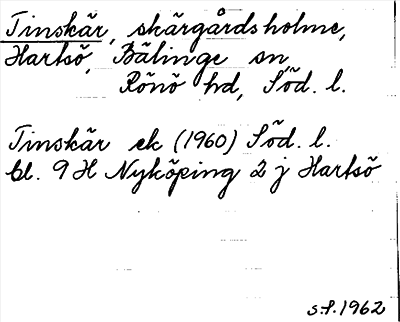 Tinskär, skärgårdsholme,
Hartsö, Bälinge sn
Rönö hd, Söd. l.
Tinskär ek (1960) Söd. l.
bl. 9 H Nyköping 2 j Hartsö
s.f. 1962